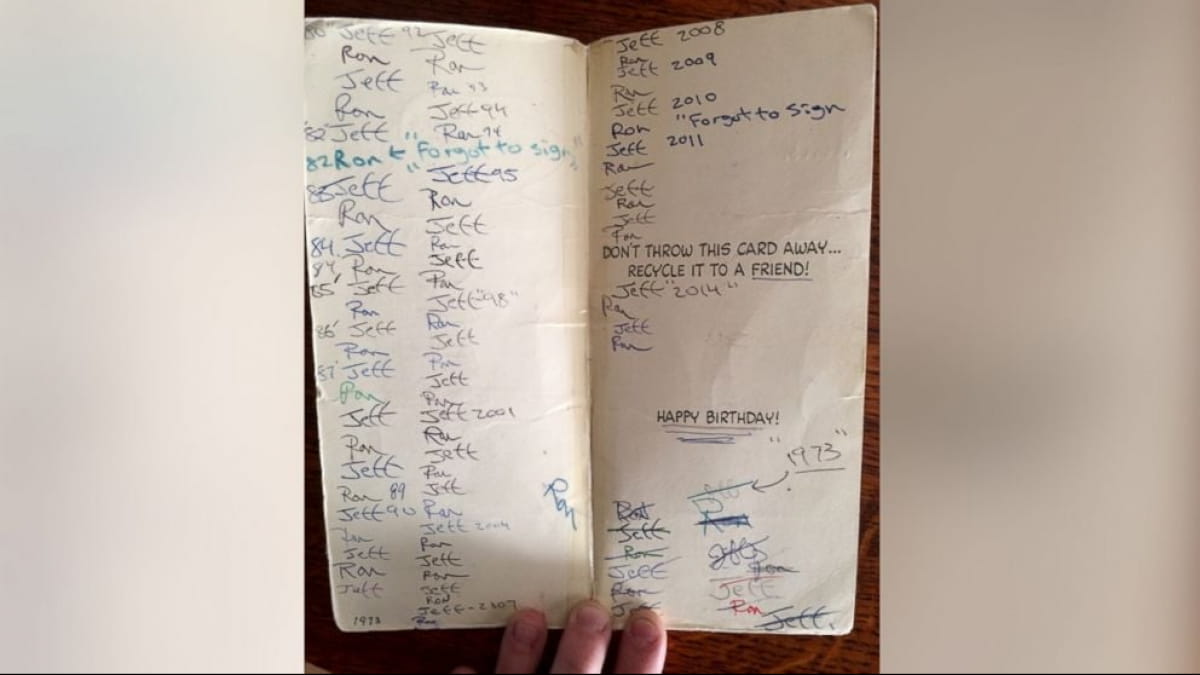 80" Jeff
Ron
Jeff
Ron
'82' Jeff
82 Ron ← "Forgot to sign"
83 Jeff
Ron
84 Jeff
84 Ron
85' Jeff
Ron
86' Jeff
Ron
87' Jeff
Ron
Jeff
Ron
Jeff
Ron 89
Jeff 90
Ron
Jeff
Ron
Jeff
1973
92 Jeff
Ron
Ron 93
Jeff 94
Ron 94
" Jeff 95
Ron
Jeff
Ron
Jeff
Ron
Jeff "98"
Ron
Jeff
Ron
Jeff
Ron
Jeff 2001
Ron
Jeff
Ron
Jeff
Ron
Jeff 2004
Ron
Jeff
Ron
Jeff
Ron
Jeff - 2007
Ron
Ron
Jeff 2008
Ron
Jeff 2009
Ron
Jeff 2010
Ron "Forgot to sign
Jeff 2011
Ron
Jeff
Ron
Jeff
Ron
DON'T THROW THIS CARD AWAY...
RECYCLE IT TO A FRIEND!
Jeff "2014"
Ron
Jeff
Ron
HAPPY BIRTHDAY!
"1973"
Ron
Jeff
Ron
Jeff
Ron
Jeff
Jeff
Ron
Jeff
Ron
Jeff
Ron
Jeff.